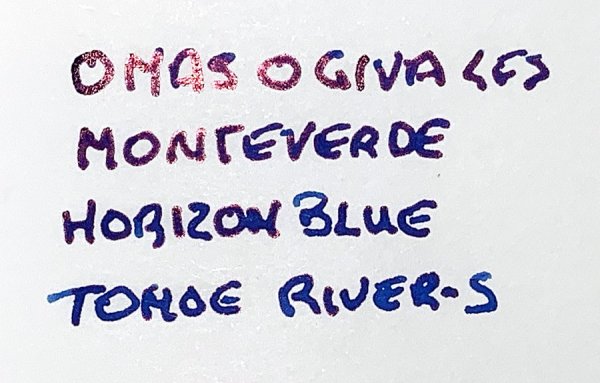 OMAS OGIVA <ES>
MONTEVERDE
HORIZON BLUE
TOMOE RIVER-S